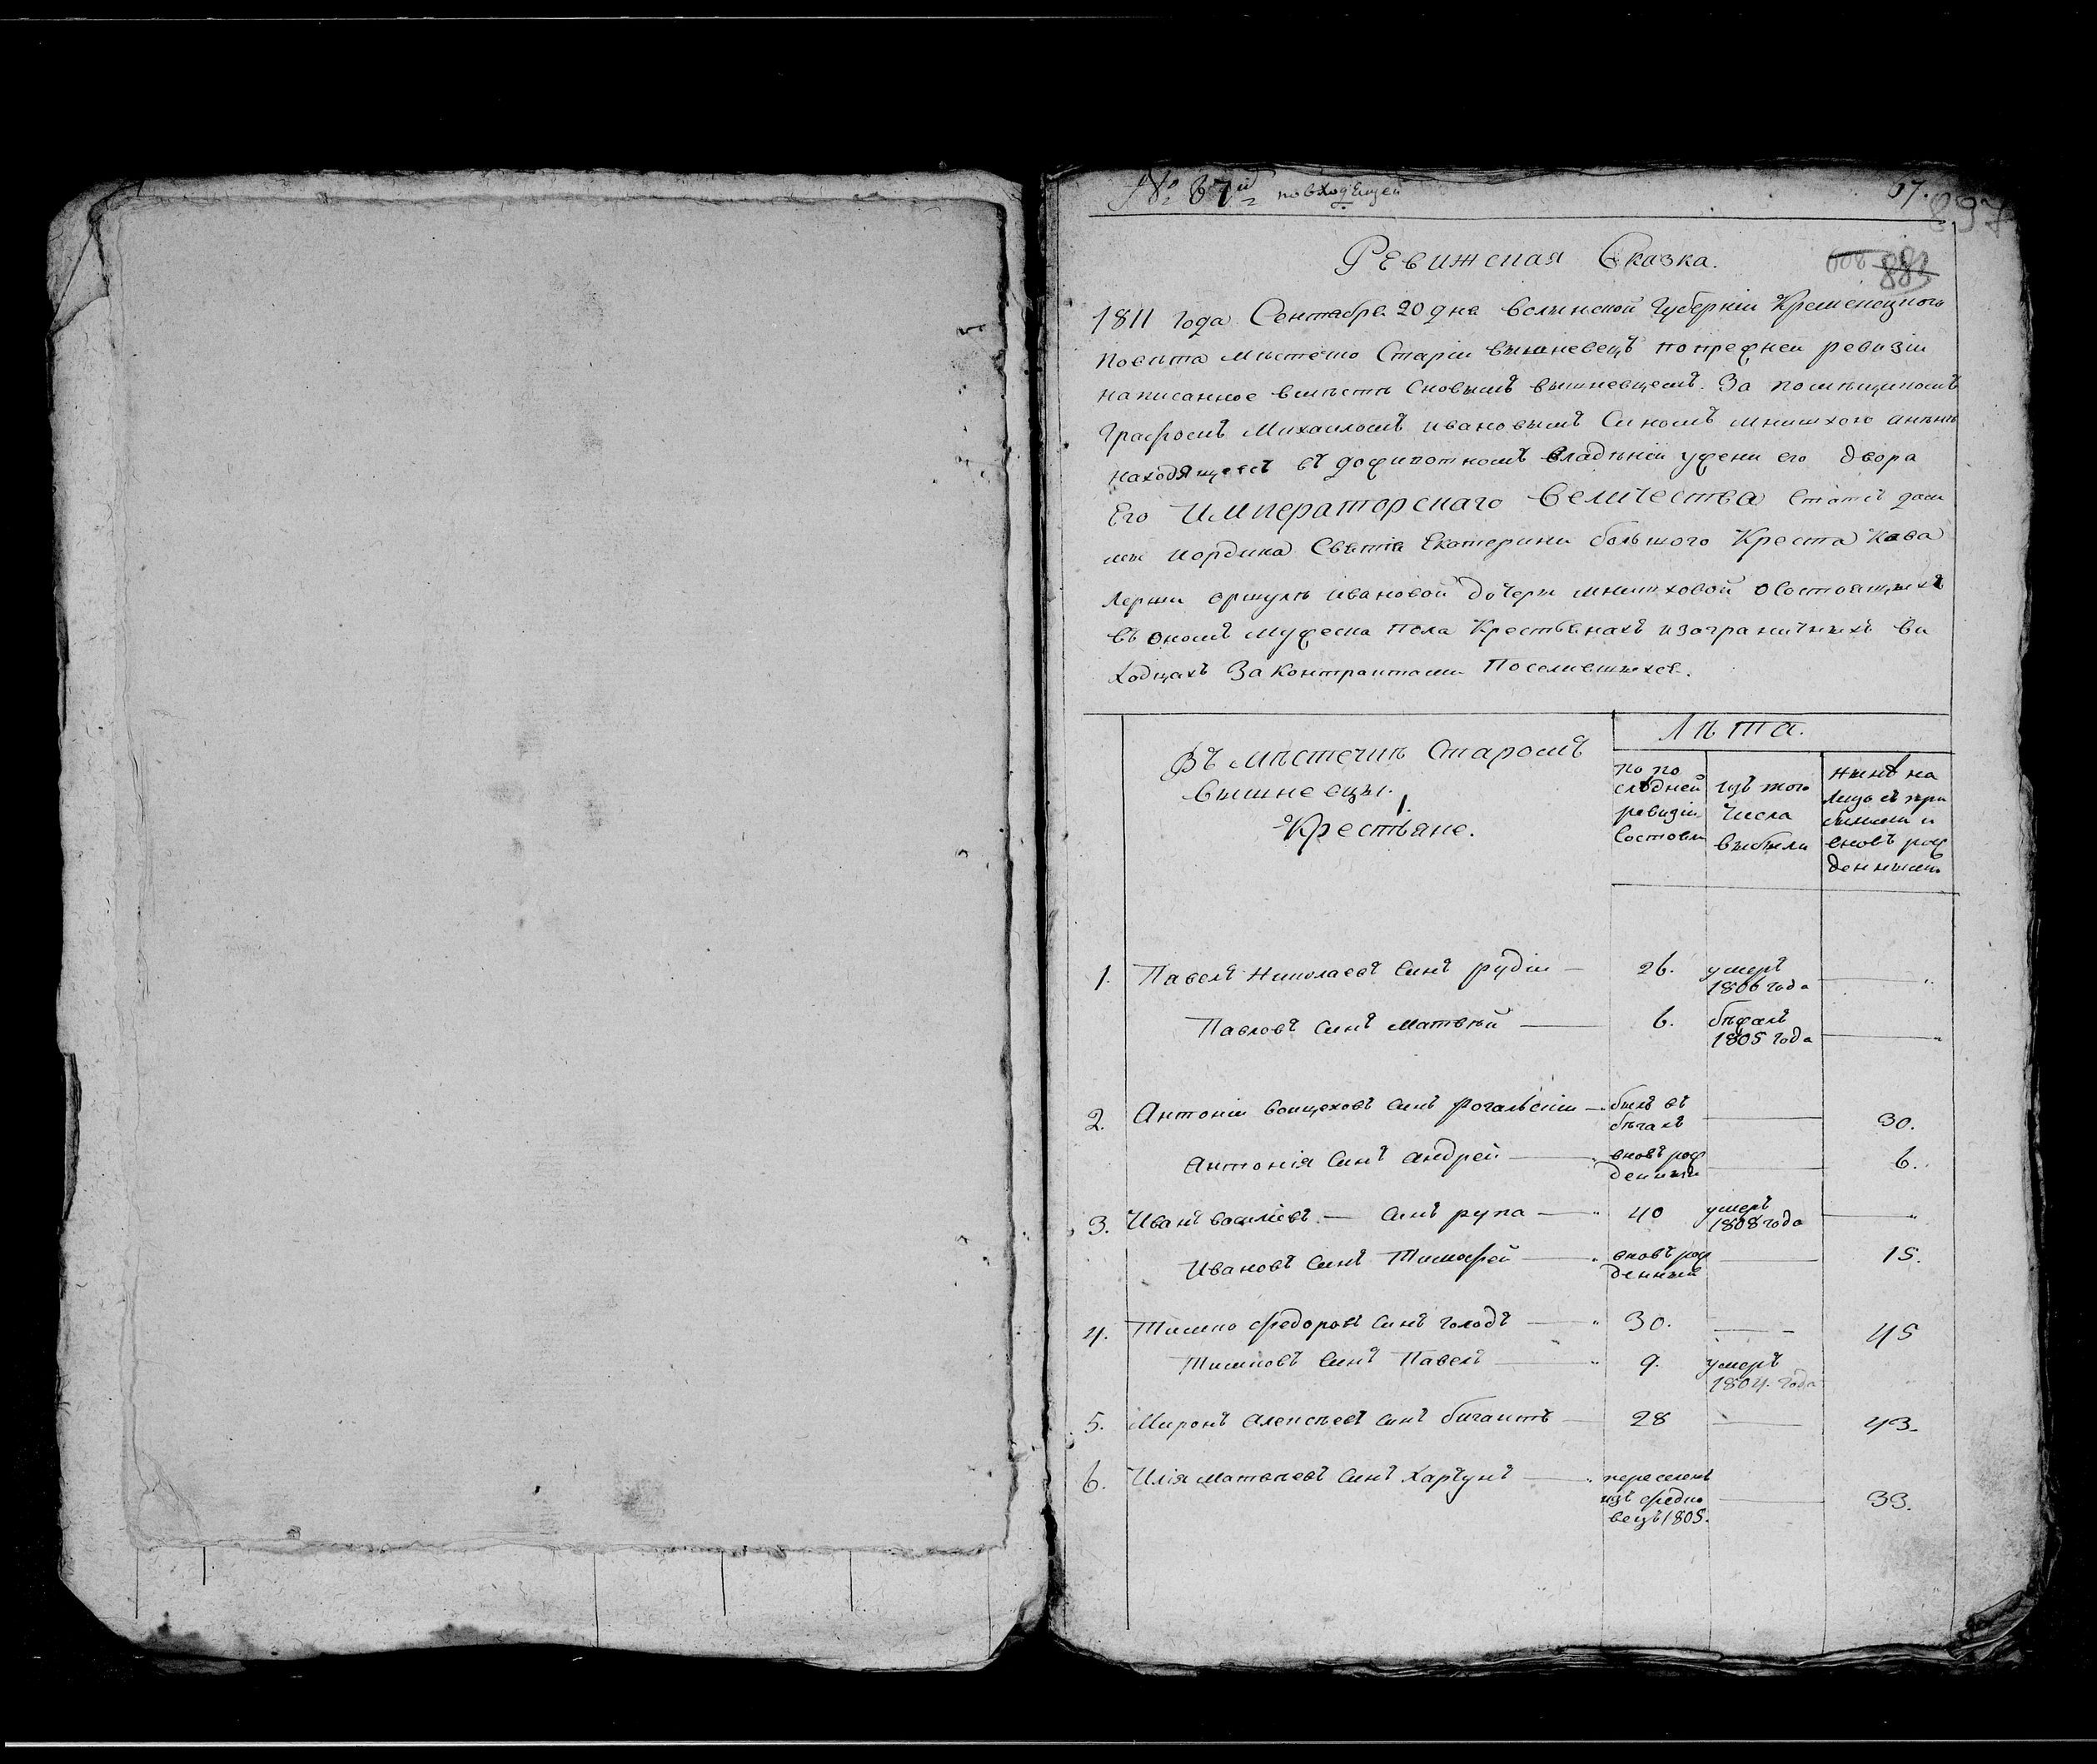 № 67й по входящей 67. 897
Ревижская Сказка.
1811 года Сентабра 20 дна волинской Губерніи Кременецкого
повѣта мѣстечко Старіи вышневецъ попрежнеи ревизіи
написанное вмѣстѣ Сновымъ вышневцемъ. За помѣщикомъ
Графомъ Михаиломъ ивановымъ Синомъ мнишхого а ннѣ
находящеесъ въ доживотномъ владѣніи ужени его двора
Его Императорскаго Величества Статсъ дам
мы иордина Свѣтіа Екатерини большого Креста Кава
лерши оршулѣ ивановой дочери мнишховой о Состоящихъ
въ ономъ мужеска пола Крестьянахъ изаграничныхъ ви
ходцахъ За контрактами Поселившихсе.
Въ мѣстечкѣ Старомъ
вишневцы.
1.
Крестьяне.
Лѣта.
по по
слѣдней
ревизіи
Состояли
изъ того
числа
выбыли
нынѣ на
лицо съ при
былыми и
вновъ рож
денными
1. Павелъ Николаевъ Синъ рудіи 26. умеръ
1806 года
Павловъ Синъ Матвѣй 6. бѣжалъ
1805 года
2. Антоніи воицеховъ Синъ рогальскіи былъ въ
бѣгахъ 30.
Антонія Синъ андрей вновъ рож
денніи 6.
3. Иванъ василіевъ Синъ рупа 40 умеръ
1808 года
Ивановъ Синъ Тимофей вновъ рож
денній 15.
4. Тимко федоровъ Синъ голодъ 30. 45
Тимковъ Синъ Павелъ 9. умеръ
1804. года
5. Миронъ алексѣевъ Синъ 28 43.
6. Илія матвѣевъ Синъ Харчукъ переселенъ
изъ
вецъ 1805. 33.